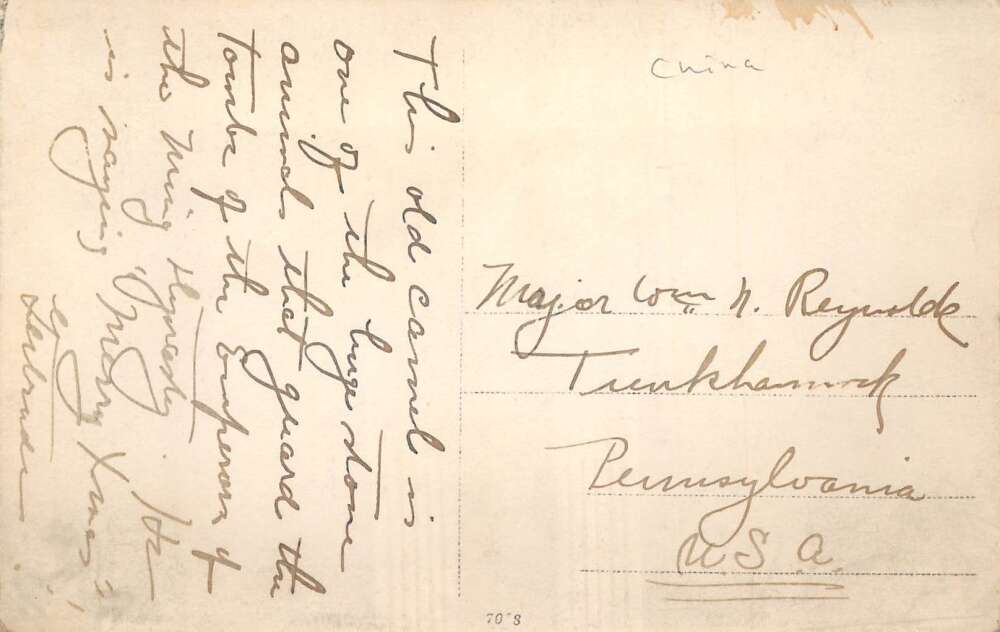 This old camel is
one of the huge stone
animals that guard the
tombs of the Emperors of
the Ming dynasty. He
is saying "Merry Xmas"!!
Gertrude.
China
Major Wm. N. Reynolds
Tunkhannock
Pennsylvania
U.S.A.
70's